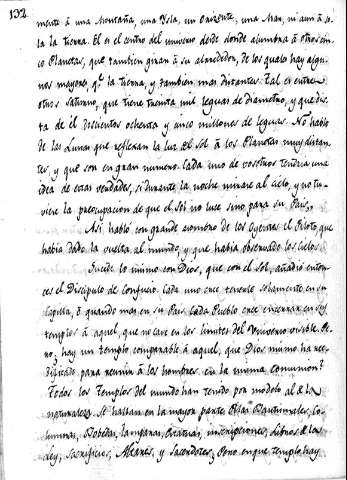 132
mente á una Montaña, una Ysla, un Orizonte, una Mar, ni aun á so-
la la tierra. El es el centro del universo desde donde alumbra á otros cin-
co Planetas, que tambien giran á su alrededor, de los quales hay algu-
nos mayores qe. la tierra, y tambien mas distantes. Tal es entre
otros Saturno, que tiene treinta mil leguas de diametro, y que dis-
ta de él doscientos ochenta y cinco millones de leguas. No hablo
de las Lunas que reflexan la luz del Sol á los Planetas muy distan-
tes, y que son en gran numero. Cada uno de vosotros tendria una
idea de estas verdades, si durante la noche mirase al cielo, y no tu-
viere la preocupacion de que el Sol no luce sino para su Pais,,
Asi habló con grande asombro de los oyentes el Piloto, que
habia dado la vuelta al mundo, y que habia observado los cielos.
Sucede lo mismo con Dios, que con el Sol, añadió enton-
ces el Discipulo de Confucio. Cada uno cree tenerle solamente en su
Capilla, ó quando mas en su Pais. Cada Pueblo cree encerrar en sus
templos á aquel, que no cave en los limites del Universo visible. Pe-
ro, hay un templo comparable á aquel, que Dios mismo ha ace-
dificado para reunir á los hombres en la misma comunion?
Todos los templos del mundo han tenido por modelo al de la
naturaleza. Se hallan en la mayor parte Pilas Bautismales, Co-
lumnas, Bobedas, lamparas, estatuas, inscripciones, Libros de la
Ley, Sacrificios, Altares, y Sacerdotes; Pero en que templo hay